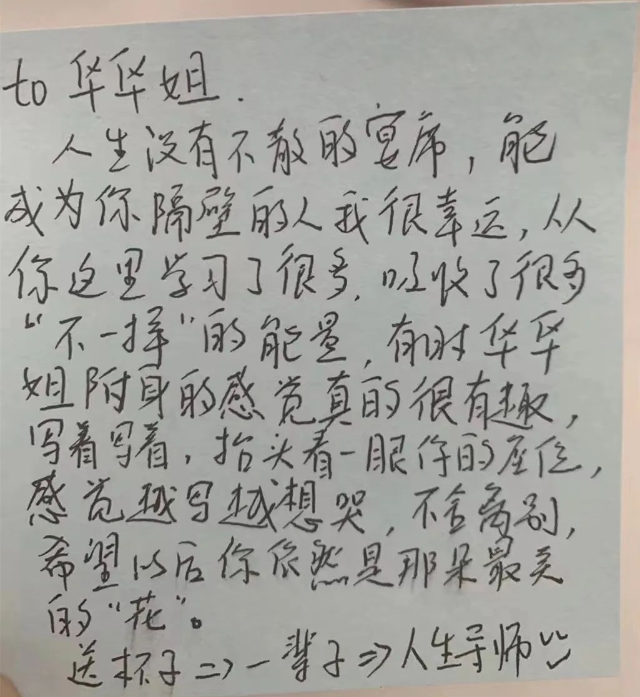 to 华华姐.
人生没有不散的宴席，能
成为你隔壁的人我很幸运，从
你这里学习了很多，吸收了很多
“不一样”的能量，有时华华
姐附身的感觉真的很有趣，
写着写着，抬头看一眼你的座位，
感觉越写越想哭，不舍离别，
希望以后你依然是那朵最美
的“花”。
送杯子⇒一辈子⇒人生导师